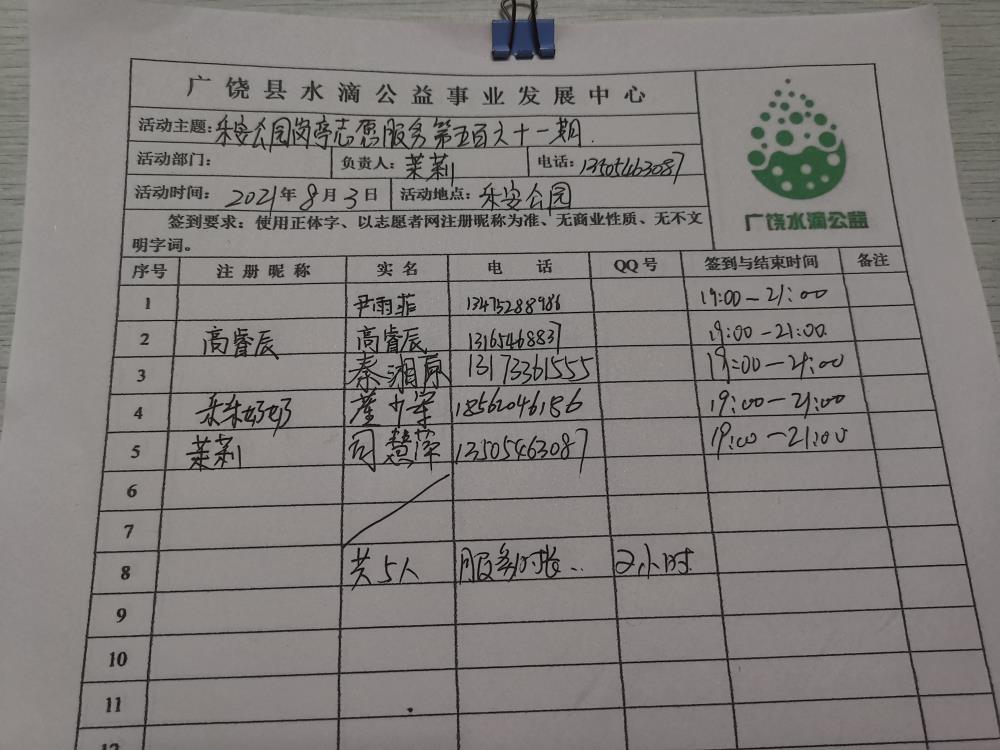 广饶县水滴公益事业发展中心
活动主题:乐安公园岗亭志愿服务第五百六十一期.
活动部门: 负责人:茉莉 电话:13505463087
活动时间: 2021年8月3日 活动地点:乐安公园
签到要求:使用正体字、以志愿者网注册昵称为准、无商业性质、无不文
明字词。
广饶水滴公益
序号 注册昵称 实名 电话 QQ号 签到与结束时间 备注
1 尹雨菲 13475288986 19:00-21:00
2 高睿辰 高睿辰 13165468837 19:00-21:00
3 秦湘原 13173361555 19:00-21:00
4 18562046186 19:00-21:00
5 茉莉 司慧萍 13505463087 19:00-21:00
6
7
8 共5人 服务时长.. 2小时
9
10
11
12